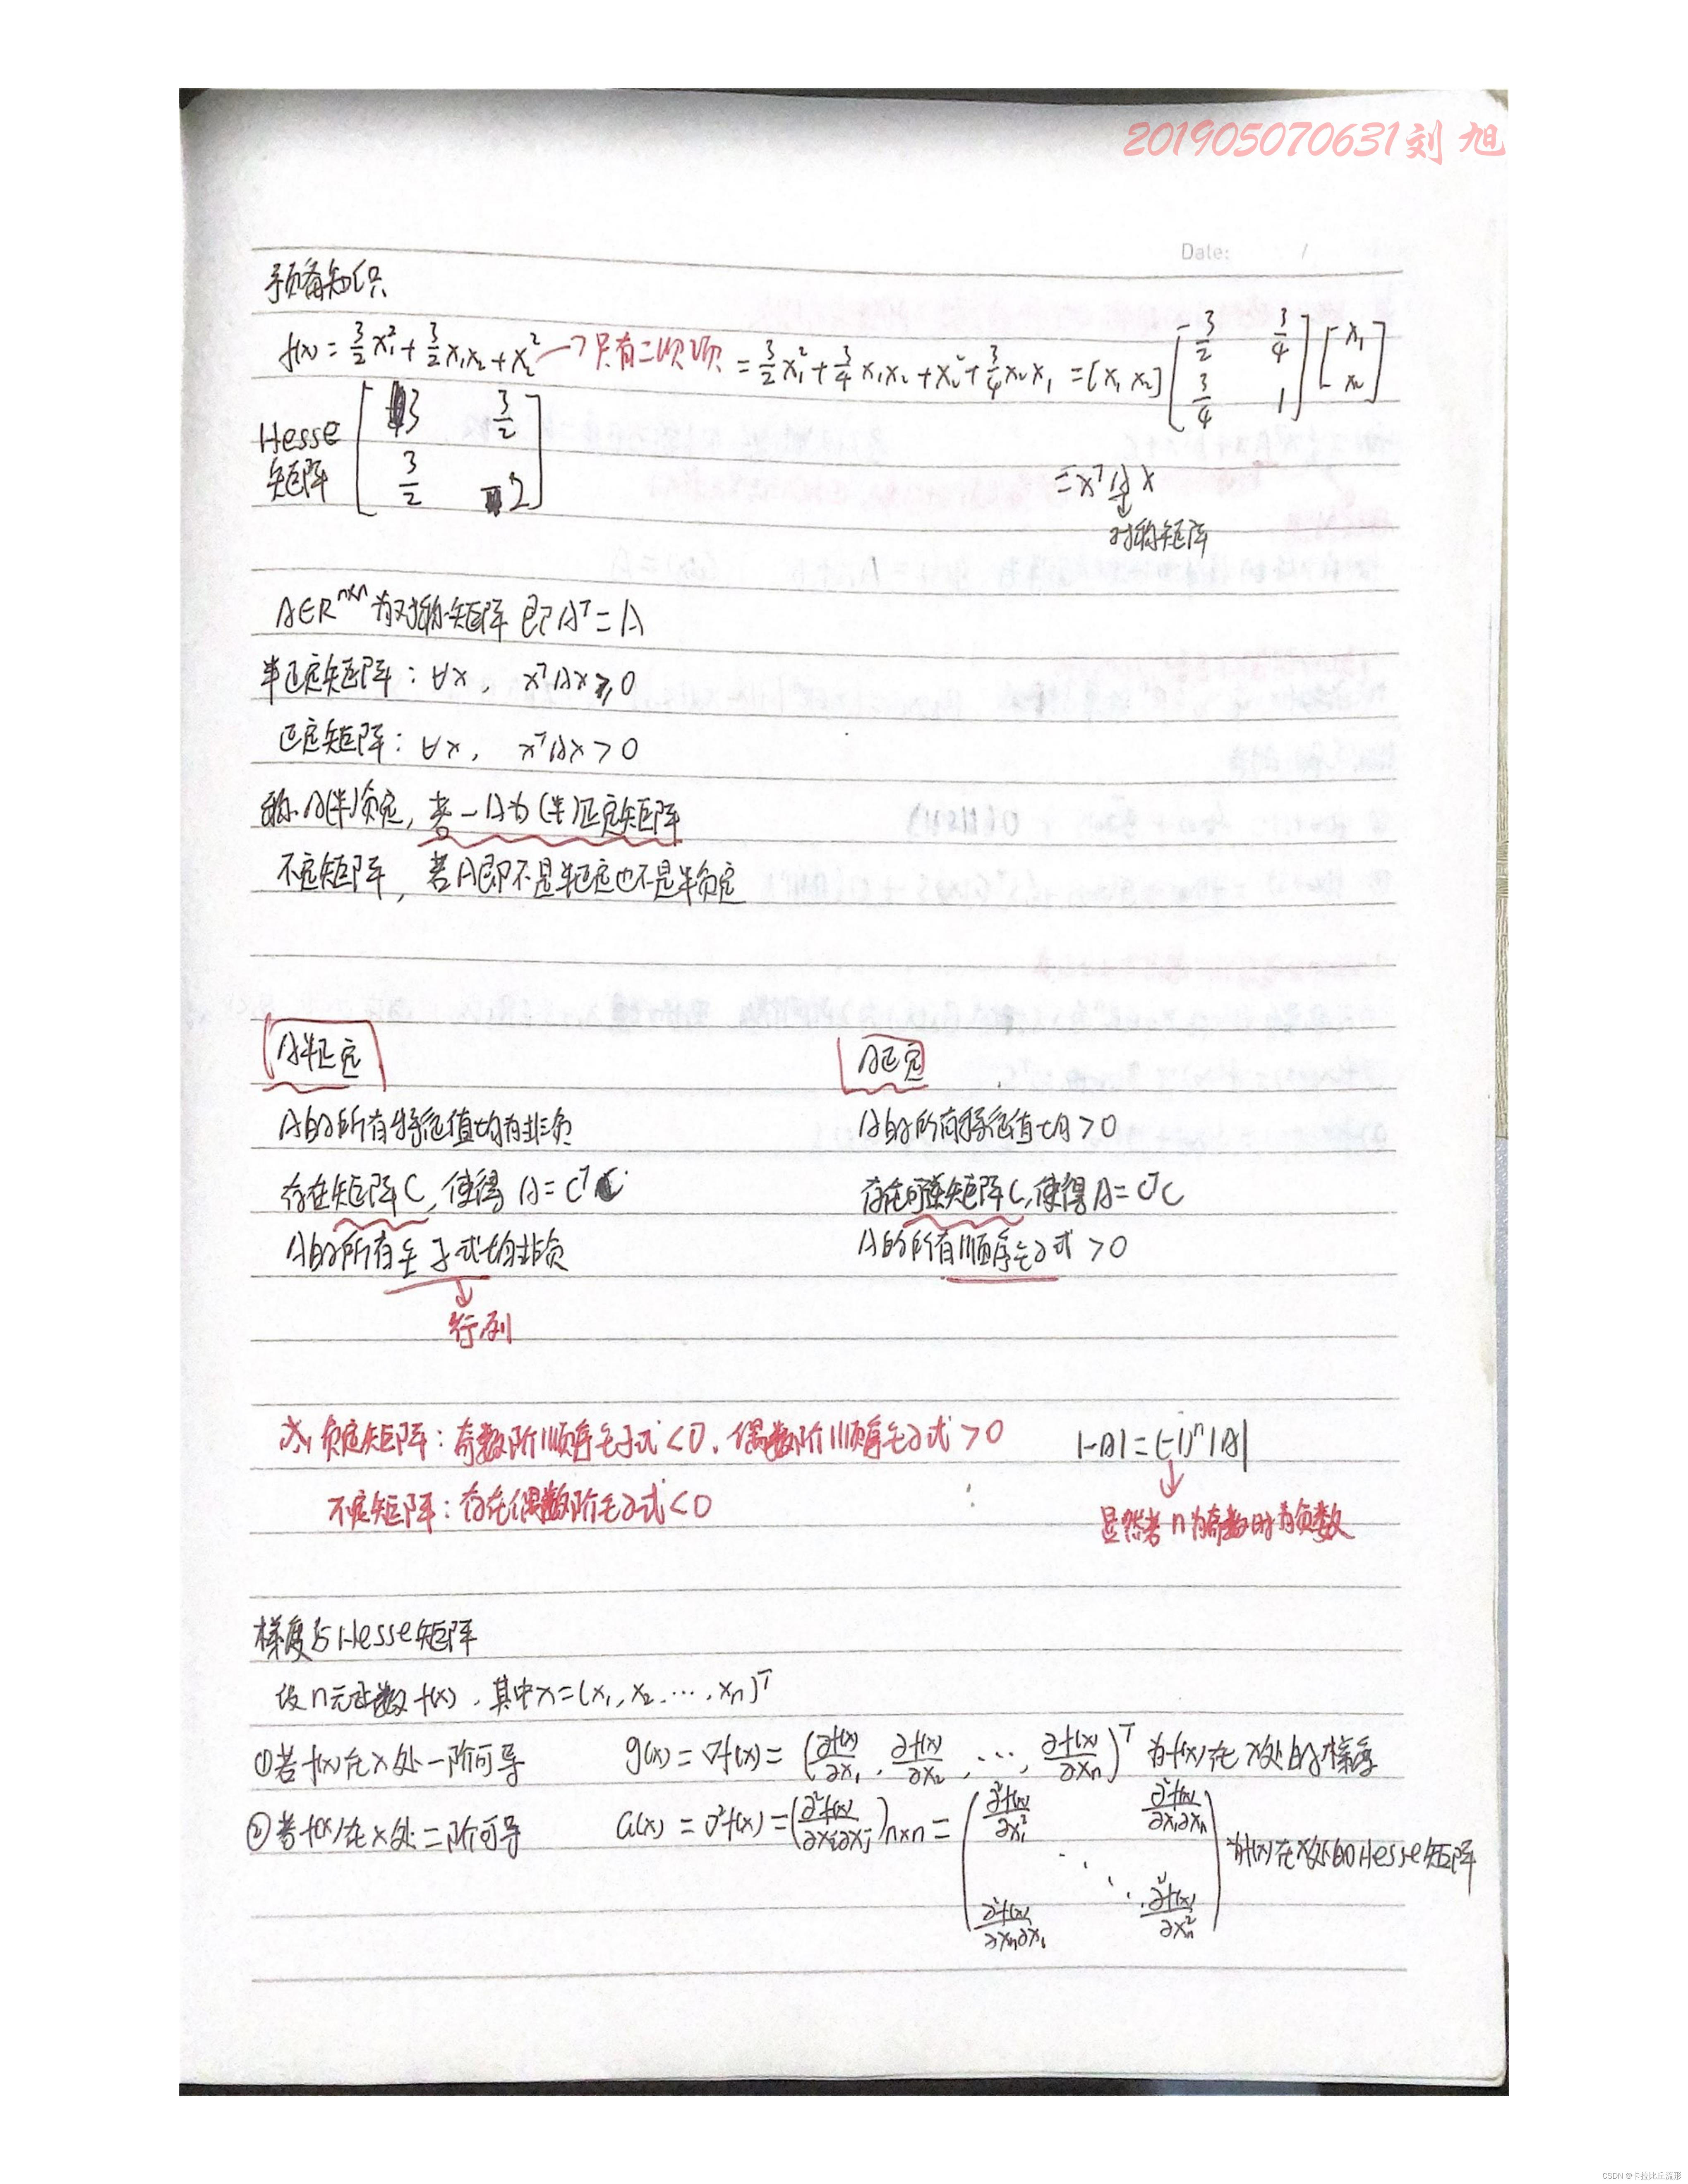 201905070631刘 旭
Date: /
预备知识
f(x) = 3/2 x₁² + 3/2 x₁x₂ + x₂² → 只有二次项 = 3/2 x₁² + 3/4 x₁x₂ + x₂² + 3/4 x₂x₁ = [x₁ x₂] [3/2 3/4; 3/4 1] [x₁; x₂]
Hesse矩阵 [3 3/2; 3/2 2]
= xᵀAx
对称矩阵
A∈Rⁿˣⁿ为对称矩阵 即Aᵀ=A
半正定矩阵：∀x， xᵀAx≥0
正定矩阵：∀x， xᵀAx>0
称A(半)负定，若-A为(半)正定矩阵
不定矩阵，若A即不是半正定也不是半负定
A半正定 A正定
A的所有特征值均有非负 A的所有特征值均>0
存在矩阵C，使得 A=CᵀC 存在可逆矩阵C，使得A=CᵀC
A的所有主子式均非负 A的所有顺序主子式>0
行列
负定矩阵：奇数阶顺序主子式<0，偶数阶顺序主子式>0 |-A|=(-1)ⁿ|A|
不定矩阵：存在偶数阶主子式<0
显然若n为奇数时为负数
梯度与Hesse矩阵
设n元函数f(x)，其中x=(x₁,x₂,⋯,xₙ)ᵀ
①若f(x)在x处一阶可导 g(x)=∇f(x)=(∂f(x)/∂x₁, ∂f(x)/∂x₂, ⋯, ∂f(x)/∂xₙ)ᵀ 为f(x)在x处的梯度
②若f(x)在x处二阶可导 G(x)=∇²f(x)=(∂²f(x)/∂xᵢ∂xⱼ)ₙₓₙ=(∂²f(x)/∂x₁² ∂²f(x)/∂x₁∂xₙ ⋱ ∂²f(x)/∂xₙ∂x₁ ∂²f(x)/∂xₙ²) 为f(x)在x处的Hesse矩阵
CSDN @卡拉比丘流形